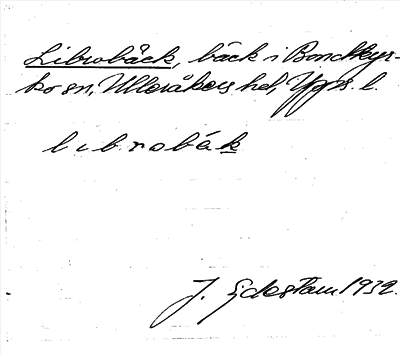 Librobäck, bäck i Bondkyr-
ko sn, Ulleråkers hd, Upps. l.
librobák
J. Ejdestam 1932.